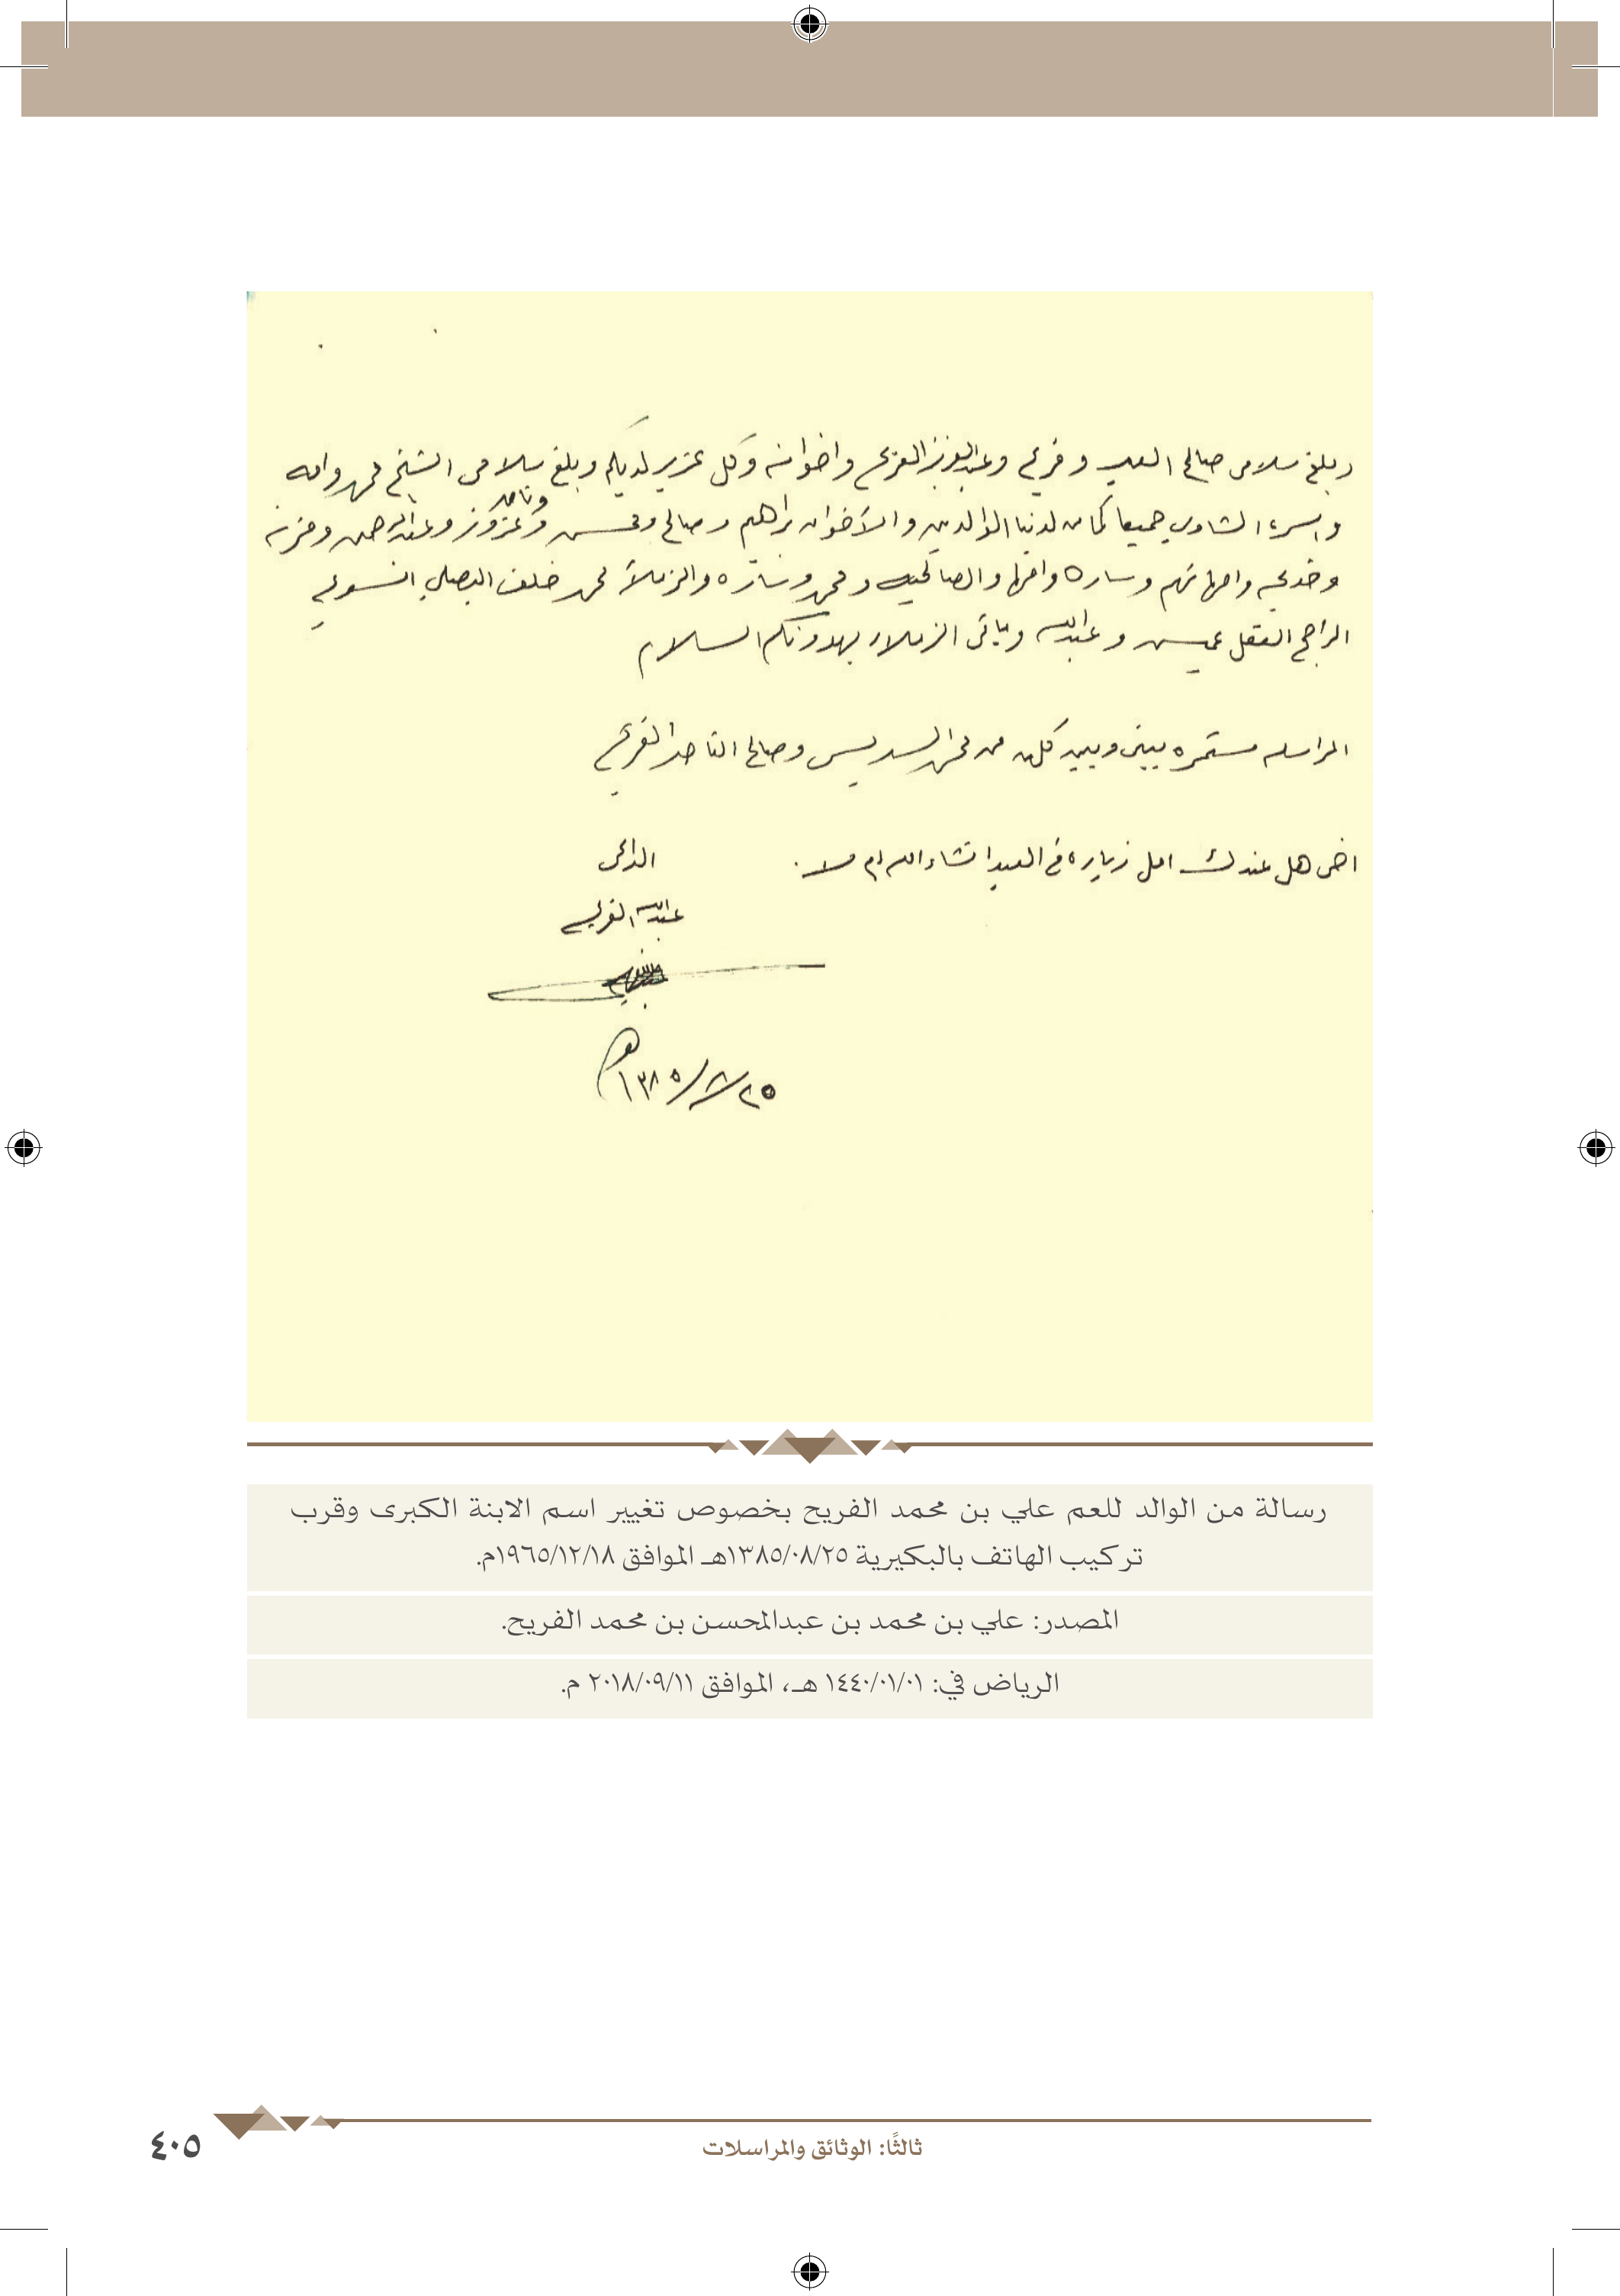 وبلغ سلامي صالح العيد وفريح وعبدالعزيز الفريح واخوانه وكل عزيز لديكم وبلغ سلامي الشيخ محمد وامه
وناصر
واسرة الشاوي جميعا كما من لدنيا الوالدين والأخوان براهيم وصالح ومحسن وعزوز وعبدالرحمن ومزنه
وخديجه وامها وساره وامها والصالحيه ومحمد وساره والزملاء محمد خلف البصلي
الراجح العقل وعبدالله وباقي الزملاء يهدونكم السلام
المراسله مستمره بيني وبين كلن من محمد السديس وصالح الناصر الفريح
اخي هل عندك امل زياره في العيد انشاء الله ام لا.
الداعي
عبدالله الفريح
٢٥/٨/١٣٨٥هـ
رسالة من الوالد للعم علي بن محمد الفريح بخصوص تغيير اسم الابنة الكبرى وقرب
تركيب الهاتف بالبكيرية ١٣٨٥/٠٨/٢٥هـ الموافق ١٩٦٥/١٢/١٨م.
المصدر: علي بن محمد بن عبدالمحسن بن محمد الفريح.
الرياض في: ١٤٤٠/٠١/٠١ هـ، الموافق ٢٠١٨/٠٩/١١ م.
ثالثًا: الوثائق والمراسلات
٤٠٥